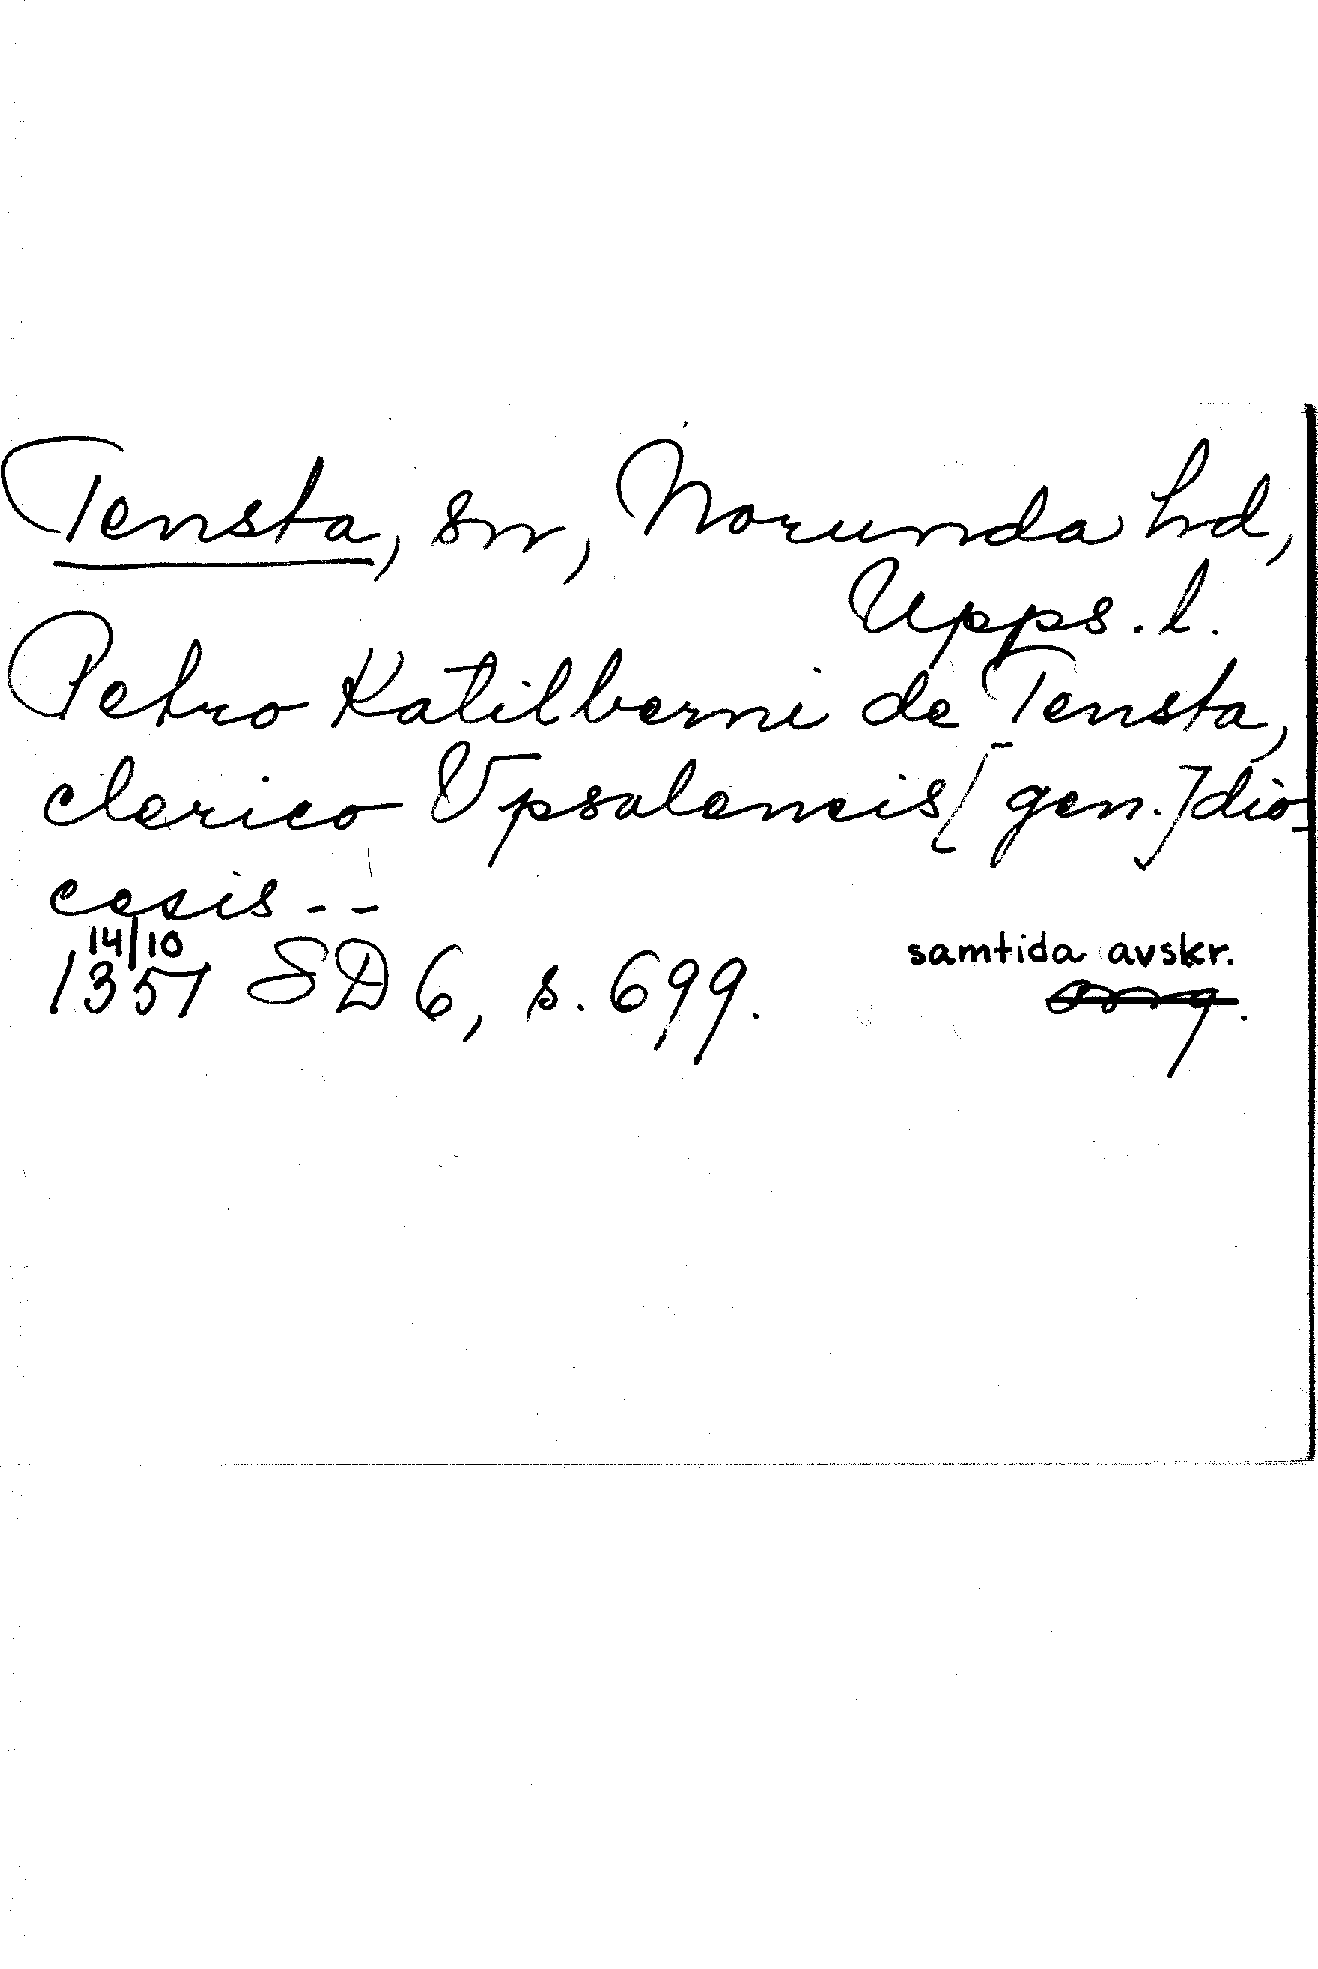 Tensta, sn, Norunda hd,
Upps. l.
Petro Katilberni de Tensta,
clerico Vpsalencis [gen.] dio-
cesis --
14/10
1357 SD 6, s. 699.
samtida avskr.